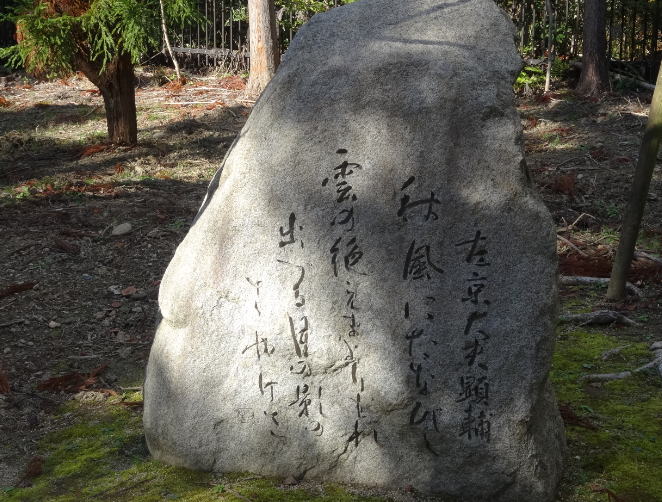 左京大夫顕輔
秋風にたなびく
雲の絶えまよりもれ
出づる月の影の
さやけさ